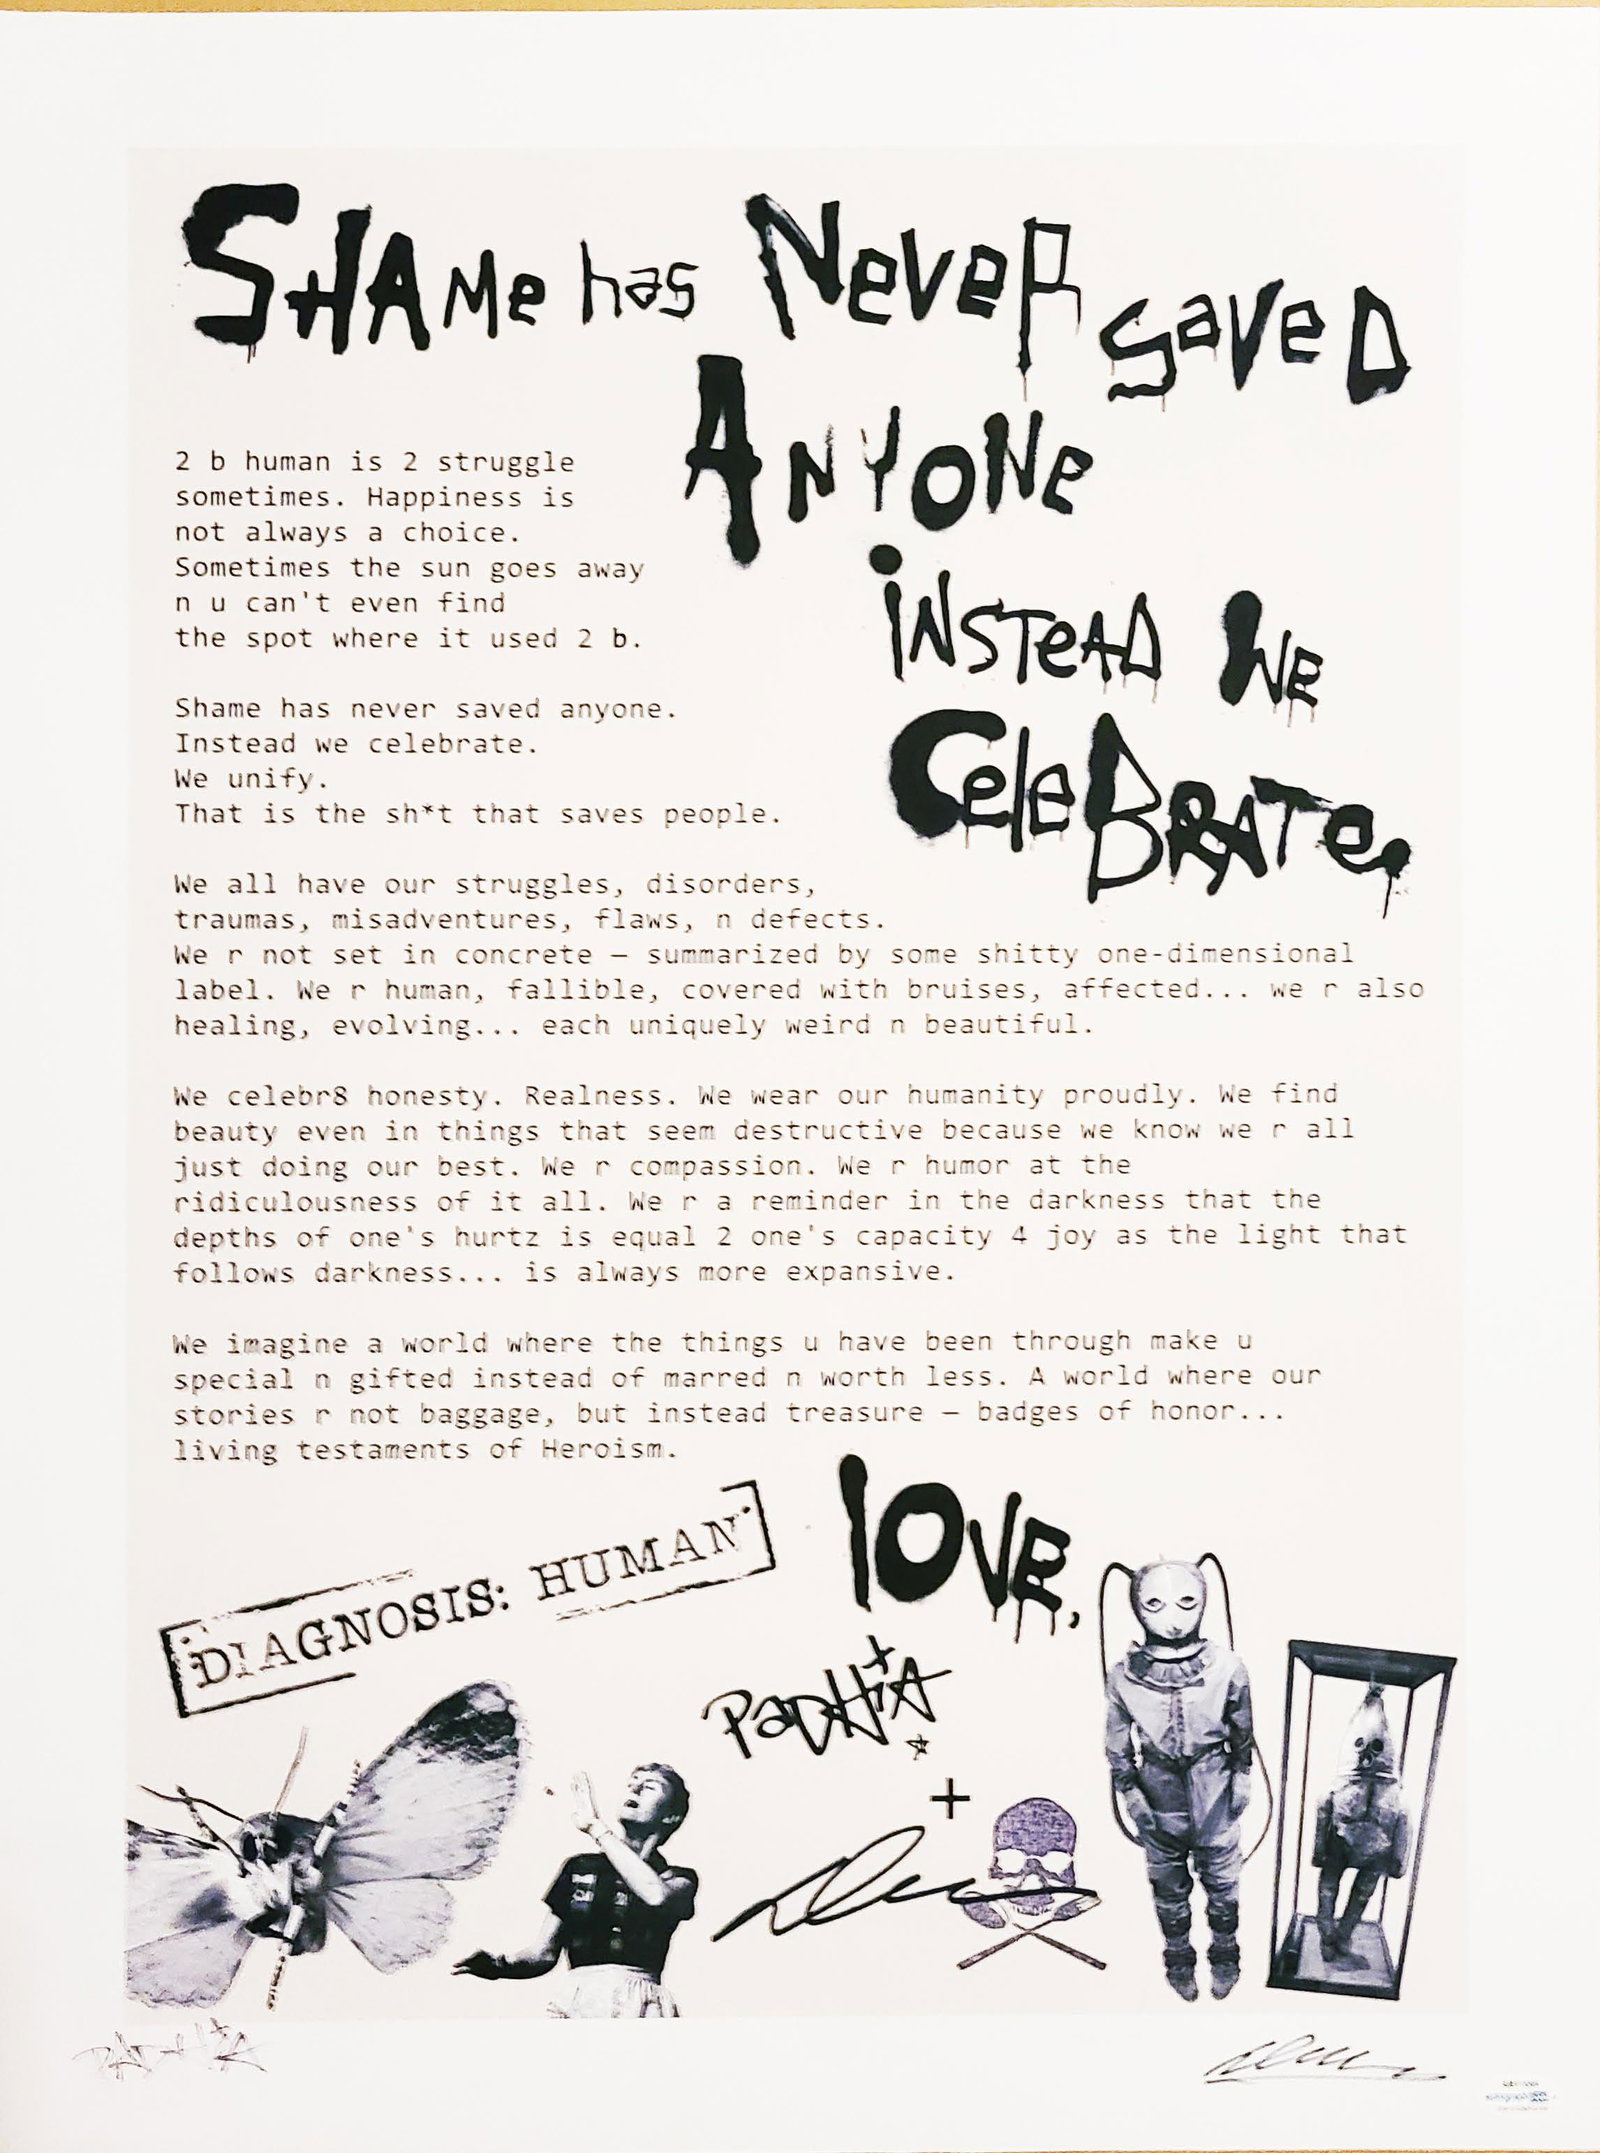 SHAMe has NeveR saveD
ANYONe
iNSTeAD We
CeleBRATe.
2 b human is 2 struggle
sometimes. Happiness is
not always a choice.
Sometimes the sun goes away
n u can't even find
the spot where it used 2 b.
Shame has never saved anyone.
Instead we celebrate.
We unify.
That is the sh*t that saves people.
We all have our struggles, disorders,
traumas, misadventures, flaws, n defects.
We r not set in concrete — summarized by some shitty one-dimensional
label. We r human, fallible, covered with bruises, affected... we r also
healing, evolving... each uniquely weird n beautiful.
We celebr8 honesty. Realness. We wear our humanity proudly. We find
beauty even in things that seem destructive because we know we r all
just doing our best. We r compassion. We r humor at the
ridiculousness of it all. We r a reminder in the darkness that the
depths of one's hurtz is equal 2 one's capacity 4 joy as the light that
follows darkness... is always more expansive.
We imagine a world where the things u have been through make u
special n gifted instead of marred n worth less. A world where our
stories r not baggage, but instead treasure — badges of honor...
living testaments of Heroism.
DIAGNOSIS: HUMAN
lOVe,
PaDHiA
+